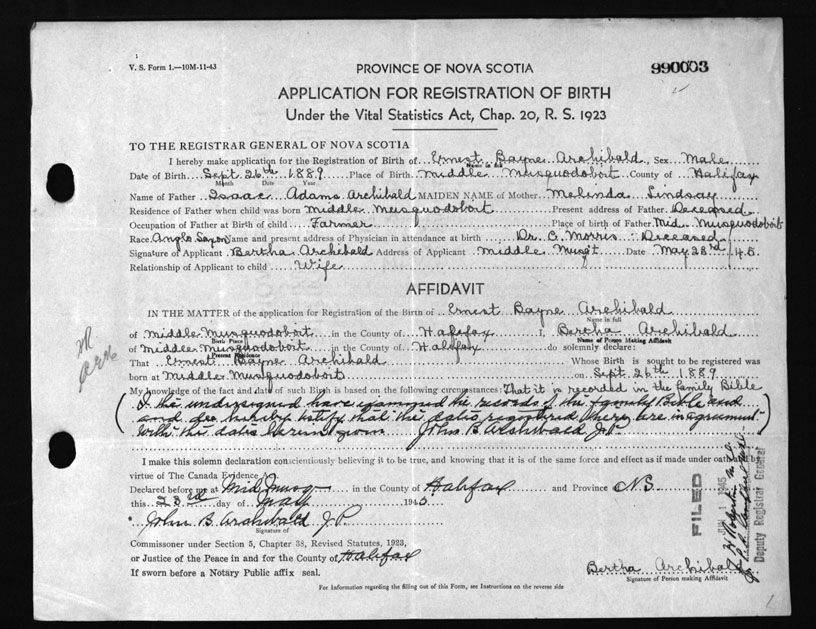 V. S. Form 1.—10M-11-43
PROVINCE OF NOVA SCOTIA
990603
APPLICATION FOR REGISTRATION OF BIRTH
Under the Vital Statistics Act, Chap. 20, R. S. 1923
TO THE REGISTRAR GENERAL OF NOVA SCOTIA
I hereby make application for the Registration of Birth of Ernest Bayne Archibald, Sex Male
Name in full
Date of Birth Sept. 26th 1889 Place of Birth Middle Musquodoboit County of Halifax
Month Date Year
Name of Father Isaac Adams Archibald MAIDEN NAME of Mother Melinda Lindsay
Residence of Father when child was born Middle Musquodoboit Present address of Father Deceased
Occupation of Father at Birth of child Farmer Place of birth of Father Mid. Musquodoboit
Race Anglo Saxon Name and present address of Physician in attendance at birth Dr. C. Morris Deceased
Signature of Applicant Bertha Archibald Address of Applicant Middle Musq't Date May 23rd 145
Relationship of Applicant to child Wife
AFFIDAVIT
IN THE MATTER of the application for Registration of the Birth of Ernest Bayne Archibald
Name in full
of Middle Musquodoboit in the County of Halifax I, Bertha Archibald
Birth Place Name of Person Making Affidavit
of Middle Musquodoboit in the County of Halifax do solemnly declare:
Present Residence
That Ernest Bayne Archibald Whose Birth is sought to be registered was
born at Middle Musquodoboit on Sept. 26th 1889
My knowledge of the fact and date of such Birth is based on the following circumstances: That it is recorded in the family Bible
(I the undersigned have examined the records of the family Bible and
and do hereby testify that the dates registered there are in agreement
with the dates herein given John B Archibald J.P.)
I make this solemn declaration conscientiously believing it to be true, and knowing that it is of the same force and effect as if made under oath by
virtue of The Canada Evidence
Declared before me at Mid Musq in the County of Halifax and Province N.S.
this 23rd day of May 1945
John B. Archibald J.P.
Signature of
Commissioner under Section 5, Chapter 38, Revised Statutes, 1923,
or Justice of the Peace in and for the County of Halifax
If sworn before a Notary Public affix seal.
FILED
JUN 1 1945
Deputy Registrar General
Bertha Archibald
Signature of Person making Affidavit
For Information regarding the filling out of this Form, see Instructions on the reverse side
1